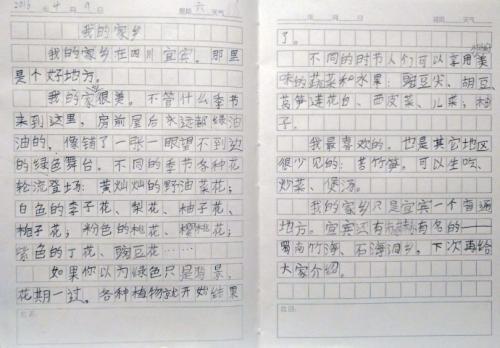 2016年4月9日 星期六 天气
我的家乡
我的家乡在四川宜宾。那里
是个好地方。
我的家乡很美。不管什么季节
来到这里，房前屋后永远都绿油
油的，像铺了一张一眼望不到边
的绿色舞台。不同的季节各种花
轮流登场：黄灿灿的野油菜花；
白色的李子花、梨花、柚子花、
桃子花；粉色的桃花、樱桃花；
紫色的丁花、豌豆花……
如果你以为绿色只是背景，
花期一过，各种植物就开始结果
年 月 日 星期 天气
了。
不同的时节人们可以享用美
味的蔬菜和水果：豌豆尖、胡豆、
莴笋莲花白、西皮菜、儿菜；柚
子。
我最喜欢的，也是其它地区
很少见的：苦竹笋。可以生吃、
炒菜、煲汤。
我的家乡只是宜宾一个普通
地方。宜宾还有有名的——
蜀南竹海、石海洞乡，下次再给
大家介绍。